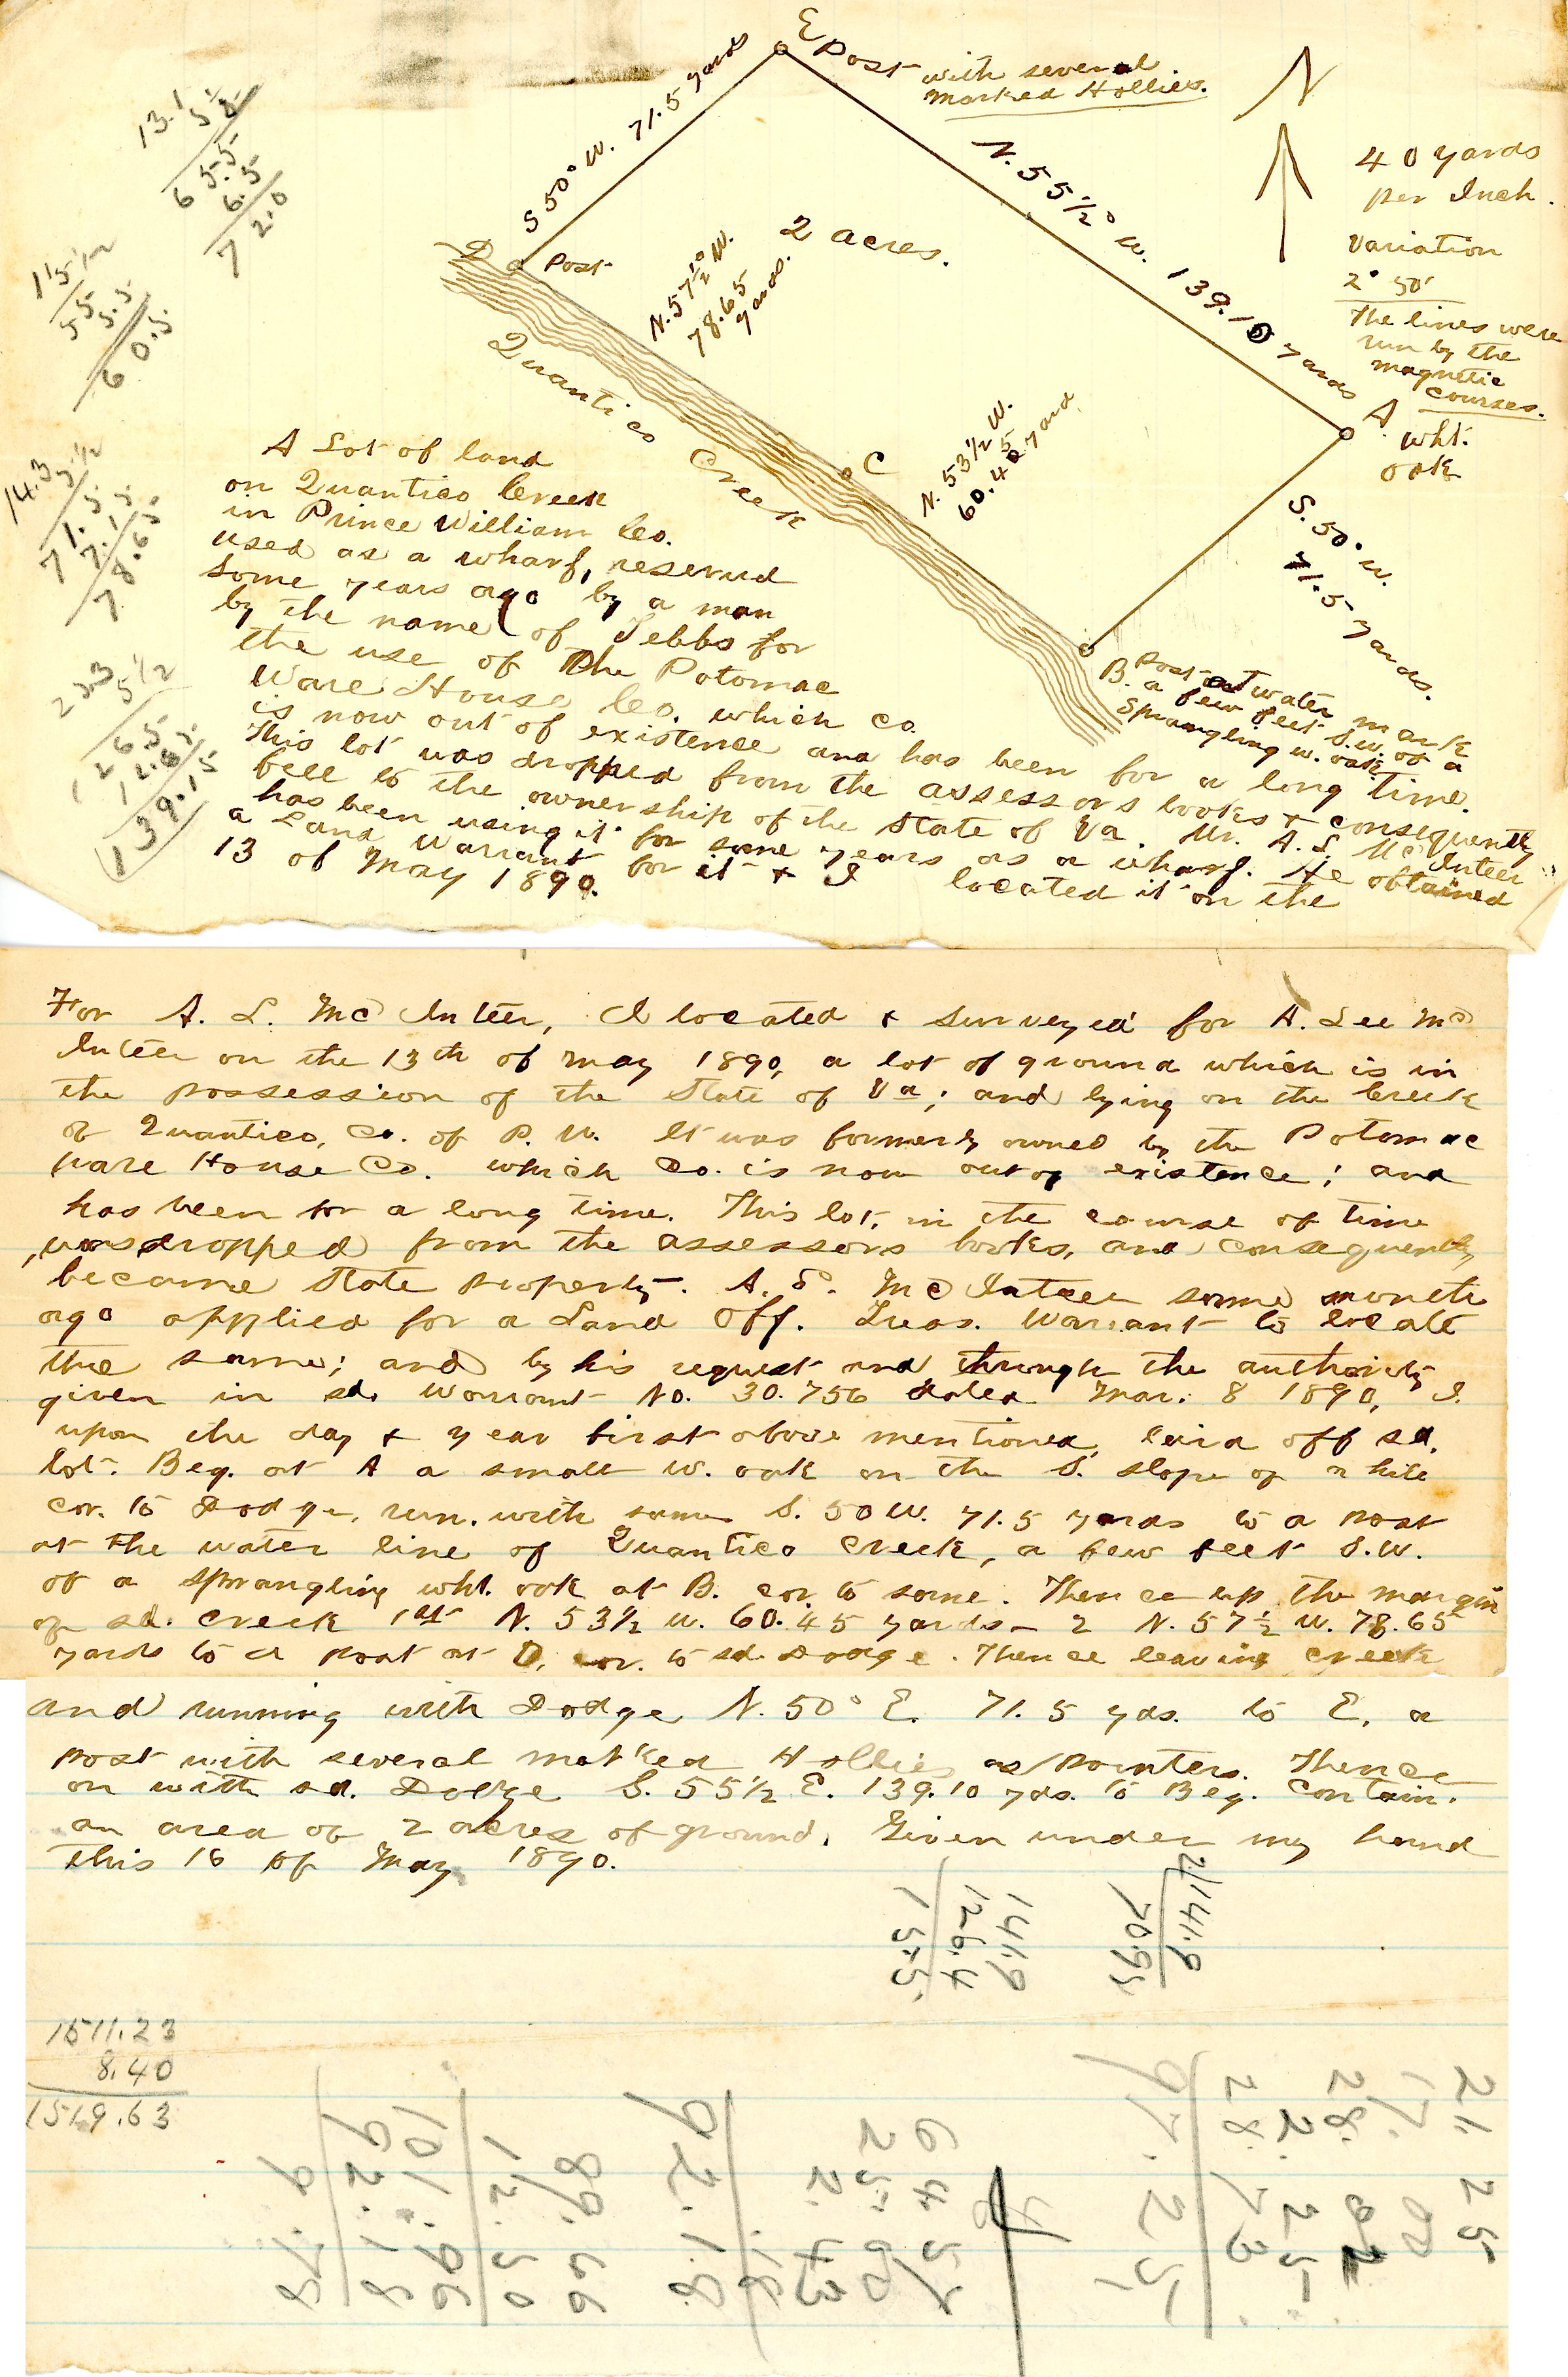 E
Post with several
Marked Hollies.
N
40 yards
per Inch.
Variation
2° 50'
The lines were
run by the
magnetic
courses.
S 50° W. 71.5 yards
N. 55 1/2° W. 139.10 yards
2 acres.
D
Post
N. 57 1/2° W.
78.65
yards.
Quantico Creek
C
N. 53 1/2 W.
60.45 yard
A
wht.
oak
S. 50° W.
71.5 yards.
B. Post at water mark
a few feet S.W. of a
Sprangling w. oak
13.1
5 1/2
65.5
6.5
72.0
11
5 1/2
55
5.5
60.5
14.3
5 1/2
71.5
7.15
78.65
5 1/2
126.5
12.65
139.15
A Lot of land
on Quantico Creek
in Prince William Co.
used as a wharf, reserved
some years ago by a man
by the name of Tebbs for
the use of The Potomac
Ware House Co. which co.
is now out of existence and has been for a long time.
This lot was dropped from the assessors books & consequently
fell to the ownership of the State of Va. Mr. A. L. McInteer
has been using it for some years as a wharf. He obtained
a Land Warrant for it & I located it on the
13 of May 1890.
For A. L. McInteer, I located & surveyed for A. Lee Mc
Inteer on the 13th of May 1890, a lot of ground which is in
the possession of the State of Va; and lying on the Creek
of Quantico, Co. of P. W. It was formerly owned by the Potomac
Ware House Co. which Co. is now out of existence; and
has been for a long time. This lot, in the course of time
was dropped from the assessors books, and consequently
became State property. A. L. McInteer some months
ago applied for a Land Off. Treas. Warrant to locate
the same; and by his request and through the authority
given in sd. Warrant No. 30.756 dated Mar. 8 1890, I.
upon the day & year first above mentioned, laid off sd.
lot. Beg. at A a small w. oak on the S. slope of a hill
cor. to Dodge, run. with same S. 50 W. 71.5 yards to a post
at the water line of Quantico Creek, a few feet S.W.
of a sprangling wht. oak at B. cor. to same. Thence up the margin
of sd. creek 1st N. 53 1/2 W. 60.45 yards - 2 N. 57 1/2 W. 78.65
yards to a post at D, cor. to sd. Dodge. Thence leaving creek
and running with Dodge N. 50° E. 71.5 yds. to E. a
post with several marked Hollies as pointers. Thence
on with sd. Dodge S. 55 1/2 E. 139.10 yds. to Beg. Contain.
an area of 2 acres of ground. Given under my hand
this 16 of May 1890.
141.9
126.4
15.5
2/141.9
70.95
1511.23
8.40
1519.63